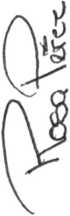 Rosa Pérez